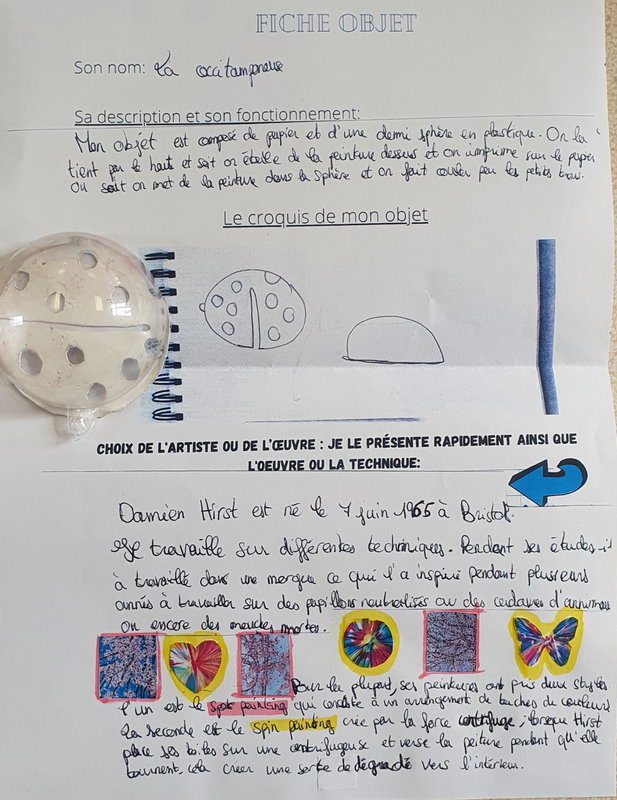 FICHE OBJET
Son nom: La coccitamponeuse
Sa description et son fonctionnement:
Mon objet est composé de papier et d'une demi sphère en plastique. On la
tient par le haut et soit on étale de la peinture dessus et on imprime sur le papier
ou soit on met de la peinture dans la sphère et on fait couler par les petits trous.
Le croquis de mon objet
CHOIX DE L'ARTISTE OU DE L'ŒUVRE : JE LE PRÉSENTE RAPIDEMENT AINSI QUE
L'OEUVRE OU LA TECHNIQUE:
Damien Hirst est né le 7 juin 1965 à Bristol.
Il travaille sur différentes techniques. Pendant ses études il
à travaillé dans une morgue ce qui l'a inspiré pendant plusieurs
annés à travailler sur des papillons neutralisés ou des cadavres d'animaux
ou encore des mouches mortes.
Pour la plupart, ses peintures ont pris deux styles
l'un est le spot painting qui consiste à un arrangement de taches de couleurs
La seconde est le spin painting crée par la force centrifuge, lorsque Hirst
place ses toiles sur une centrifugeuse et verse la peiture pendant qu'elle
tournent, cela creer une sorte de dégradé vers l'intérieur.